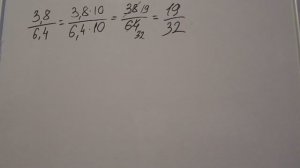 3,8/6,4 = 3,8·10/6,4·10 = 38 19/64 32 = 19/32